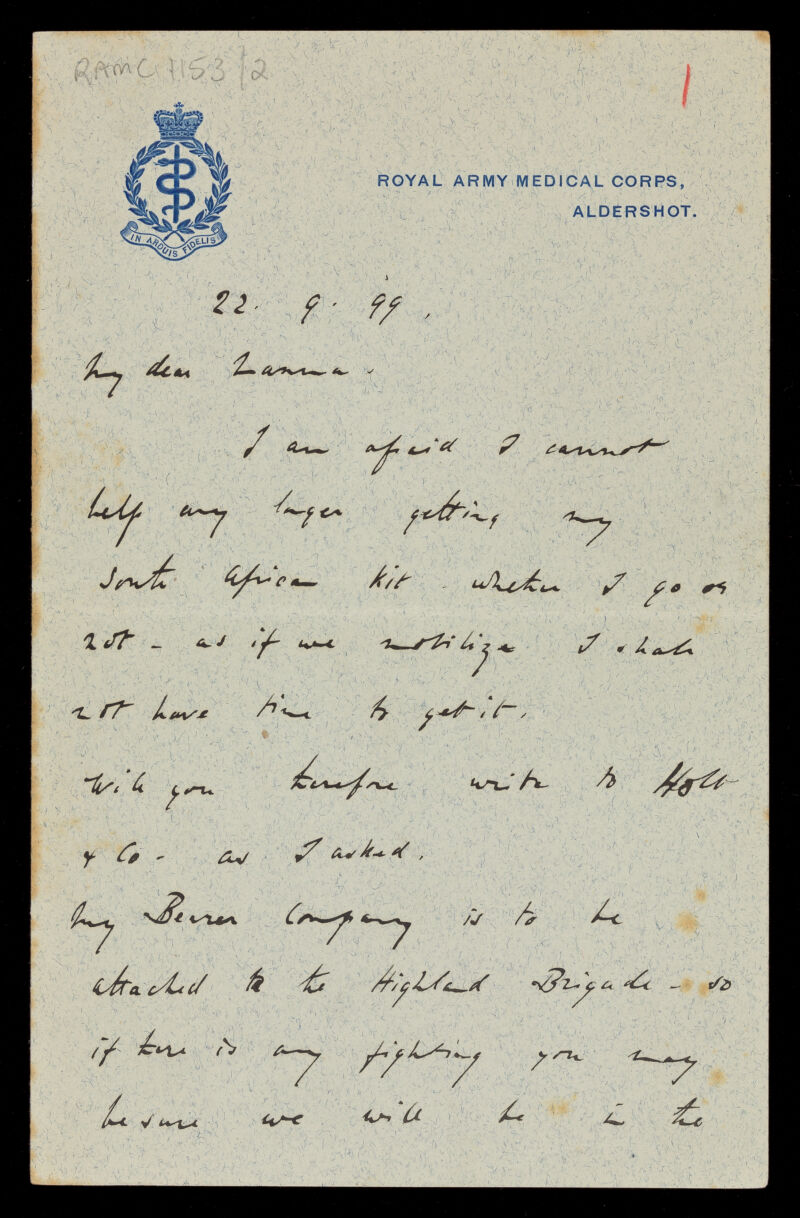 RAMC 1153/2
1
IN ARDUIS FIDELIS
ROYAL ARMY MEDICAL CORPS,
ALDERSHOT.
22. 9. 99.
My dear Mamma.
I am afraid I cannot
help any longer getting my
South African kit - whether I go or
not - as if we mobilize I shall
not have time to get it.
Will you therefore write to Holt
& Co - as I asked.
My Bearer Company is to be
attached to the Highland Brigade - so
if there is any fighting you may
be sure we will be in the